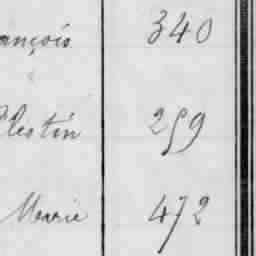 ançois 340
lestin 259
Marie 472